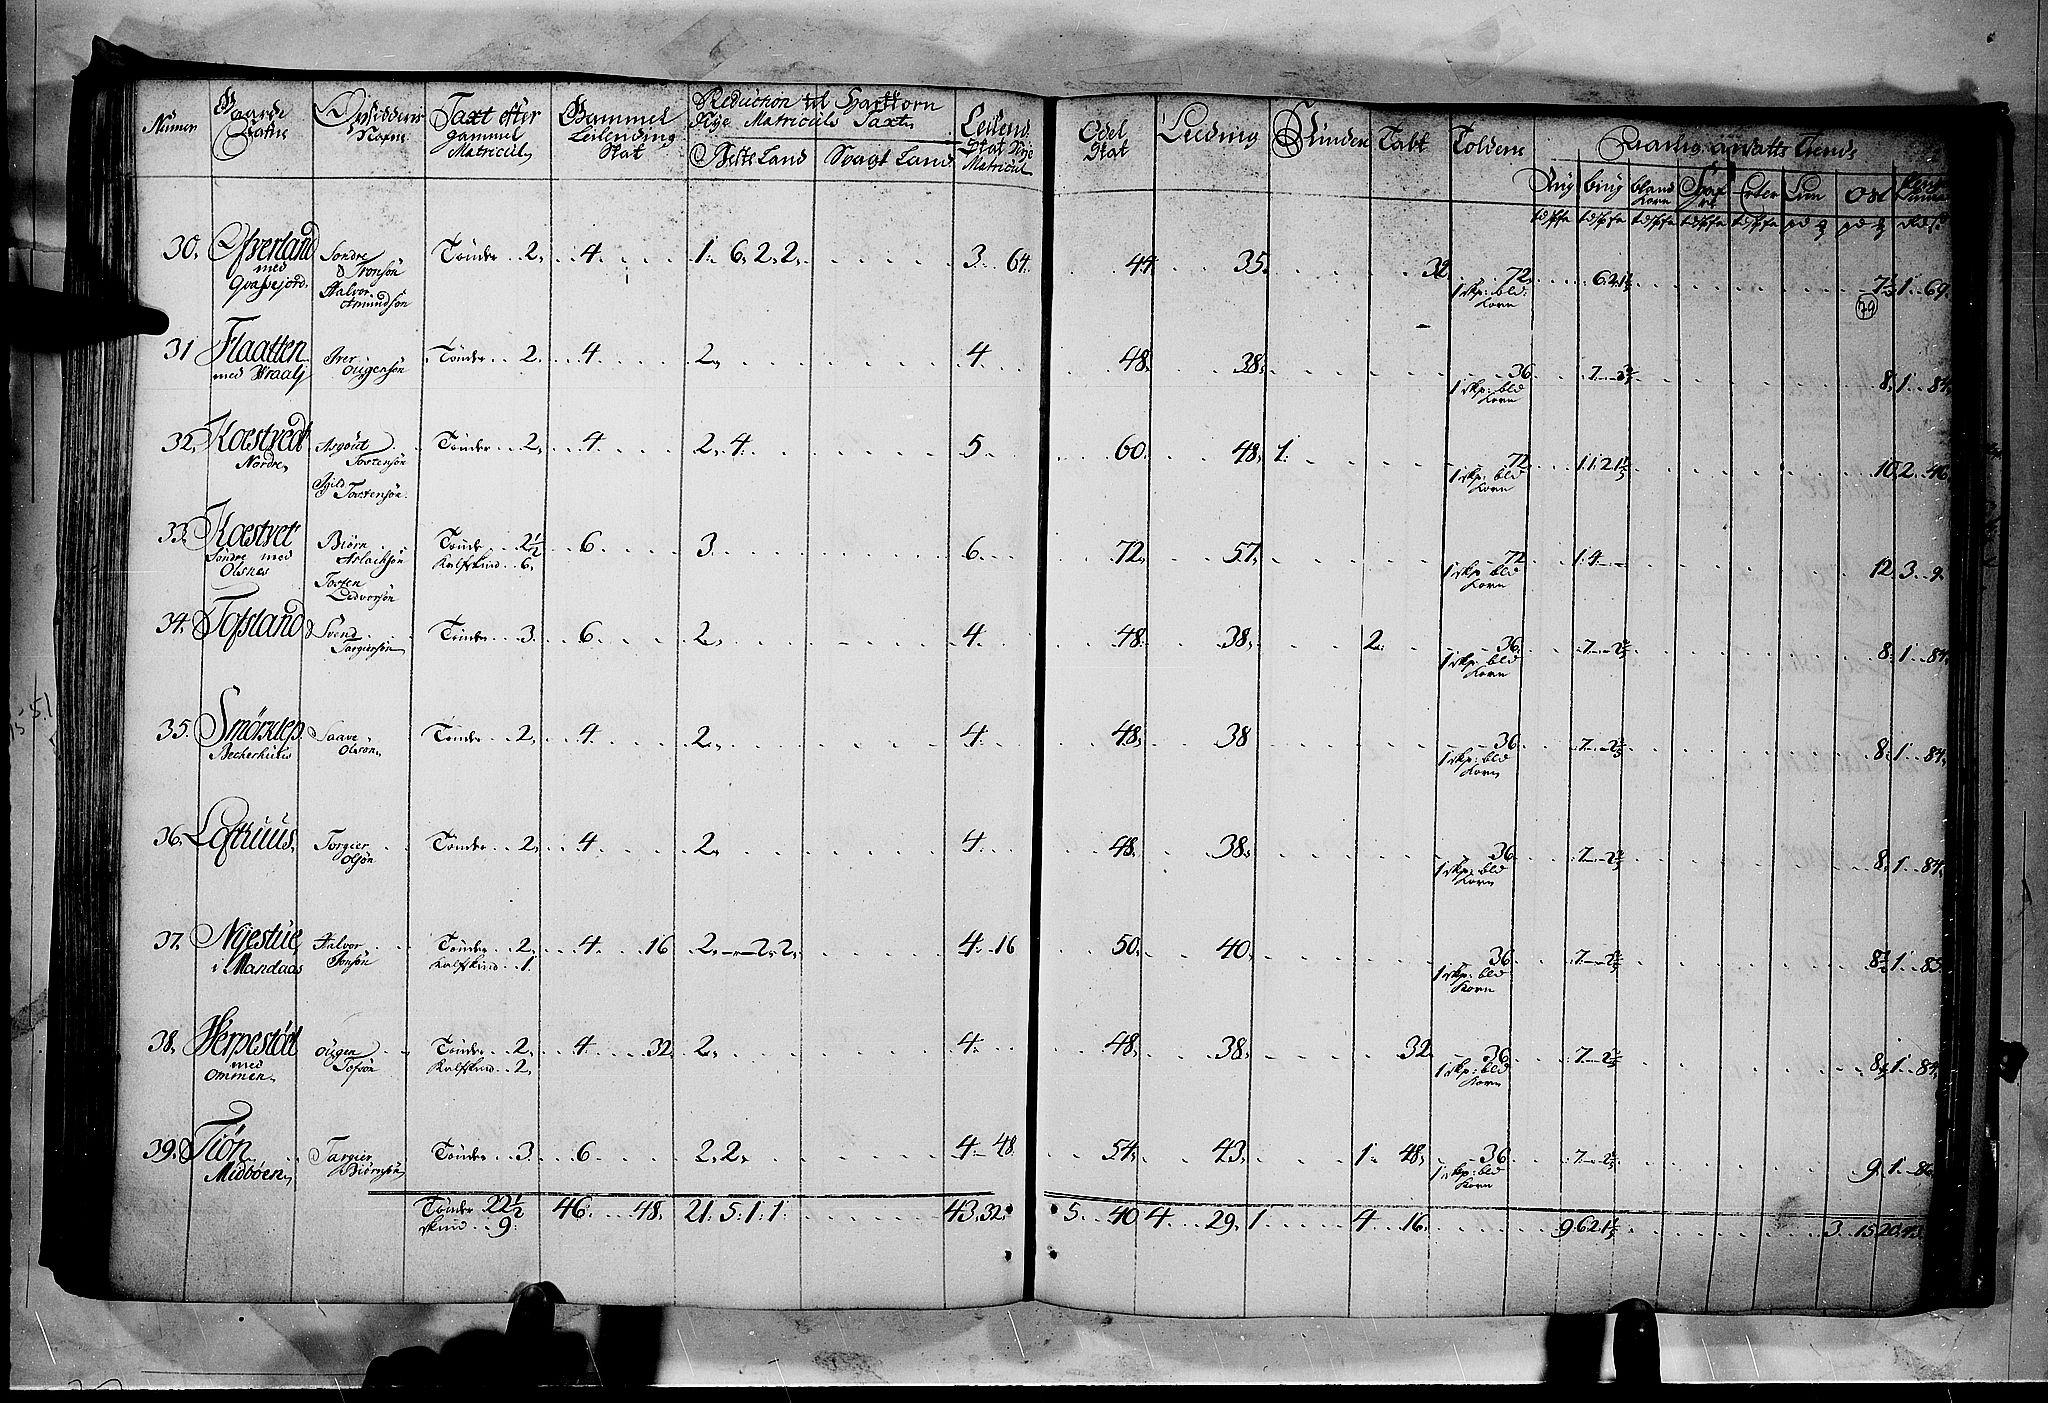 Numer Gaarde Nafne Opsidderis Nafne Taxt efter gammel Matricul Gammel Leilending Skat Reduction til Hartkorn Nÿe Matriculs Taxt Beste Land Svagt Land Leilend Skat Nÿe Matricul Odel Skat Leeding Hinder Tabt Toldene Aarlig ansatte Tiende
Rug bÿg bland Korn Erter Liin Ost
30. Øfverland med Qvassejord. Sondre Tronsön Halvor Amundsön Tönder 2, 4. 1. 6. 2. 2. 3. 64. 44. 35. 32. 72. 1 skp: bld: Korn 6 2 1 1/2 7 1/2 1. 69.
79
31 Flaatten med Vraalj Iver Ougensön Tönder 2. 4. 2, 4 48. 38. 36 1 skp: bld Korn 7 8. 1. 84.
32. Kostvedt Nordre, Asgöut Tostensön Egild Tostensön. Tönder 2, 4. 2. 4. 5 60. 48. 1. 72 1 skp: bld Korn 1. 1. 2 1 1/2 10. 2. 46.
33. Kostvet Söndre med Olsnes Biörn Aslachsön Tosten Ledvorsön Tönder 2 1/2 Kalfskind 6. 6. 3. 6. 72. 57. 72 1 skp bld Korn 1. 4. 12. 3. 9.
34. Tofsland Svend Targiersön Tönder 3. 6. 2. 4. 48. 38. 2. 36. 1 skp. bld Korn 7 8. 1. 84.
35. Smörklep Becherhuus Saave Olsson Tönder 2, 4. 2. 4. 48. 38 36 1 skp: bld Korn 7 8. 1. 84.
36. Lofthuus, Torgier Olsön Tönder 2. 4. 2. 4. 48. 38. 36 1 skp: bld Korn 7 8. 1. 84.
37. Nÿestüe i Mandaas Halvor Jonsön Tönder 2. Kalfskind 1. 4. 16 2. 2. 2. 4. 16 50. 40. 36 1 skp: bld Korn 7 8 1/2 1. 85.
38. Herpestöd med Ommen. Ougen Tofsön Tönder 2. Kalfskind 2. 4. 32. 2. 4. 48. 38. 32. 36 1 skp: bld Korn 7 8 1/2 1. 84.
39. Tiön Midböen, Targier Biörnsön Tönder 3. 6. 2. 2. 4. 48 54. 43. 1. 48. 36 1 skp: bld Korn 7 9. 1. 86.
Tönder 22 1/2 skind 9. 46. 48. 21. 5. 1. 1. 43. 32. 5. 40 4. 29. 1 4 16. 9. 6 2. 1 1/2 3. 15 20.